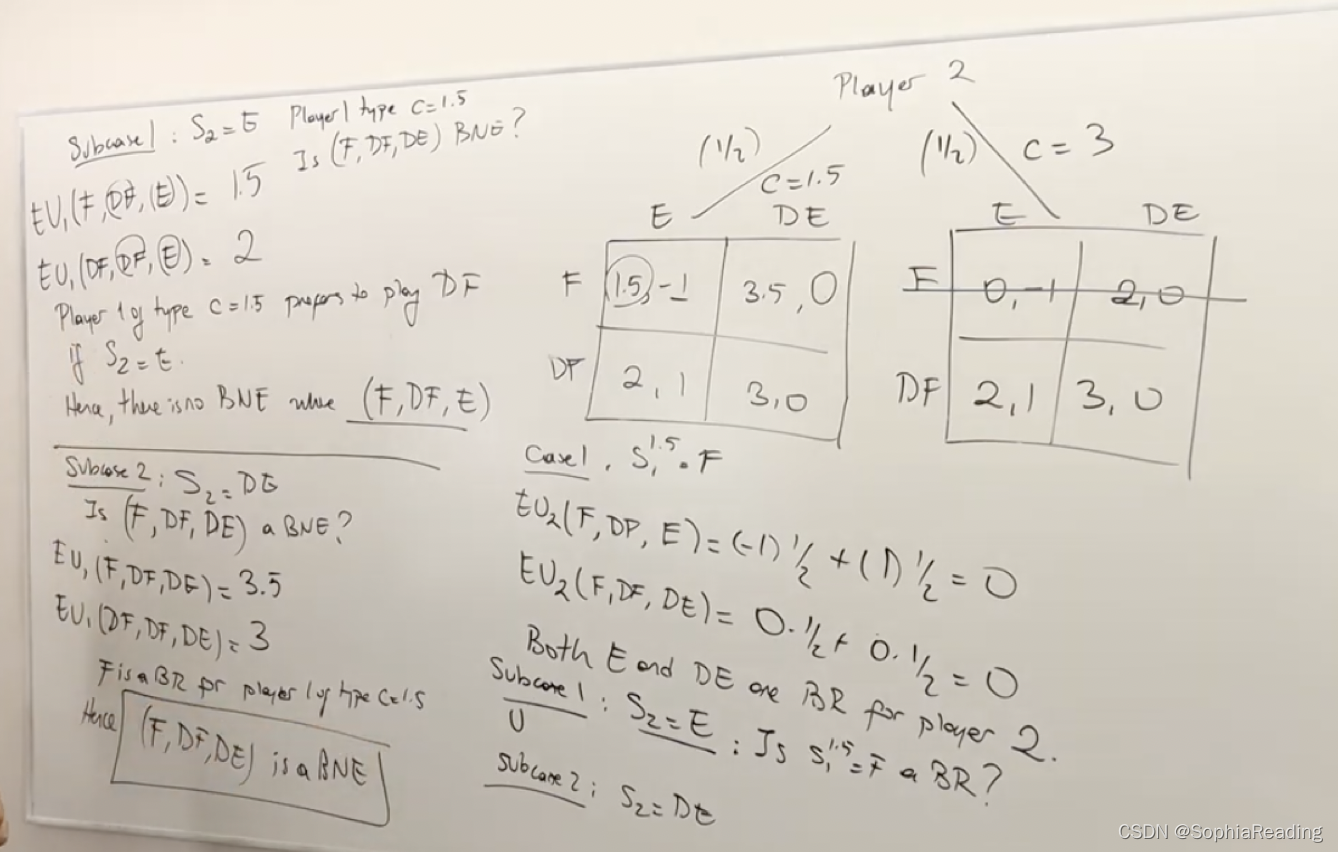 Subcase 1 : S₂ = E Player 1 type C=1.5
Is (F, DF, DE) BNE?
EU₁(F, DF, (E)) = 1.5
EU₁(DF, DF, E) = 2
Player 1 of type C = 1.5 prefers to play DF
if S₂ = E.
Hence, there is no BNE where (F, DF, E)
Subcase 2 : S₂ = DE
Is (F, DF, DE) a BNE?
EU₁(F, DF, DE) = 3.5
EU₁(DF, DF, DE) = 3
F is a BR for player 1 of type C=1.5
Hence (F, DF, DE) is a BNE
Player 2
(1/2) C=1.5
E DE
F 1.5, -1 3.5, 0
DF 2, 1 3, 0
(1/2) C = 3
E DE
F 0, -1 2, 0
DF 2, 1 3, 0
Case 1, S₁^1.5 = F
EU₂(F, DF, E) = (-1) 1/2 + (1) 1/2 = 0
EU₂(F, DF, DE) = 0·1/2 + 0·1/2 = 0
Both E and DE are BR for player 2.
Subcase 1 : S₂ = E : Is S₁^1.5 = F a BR?
U
Subcase 2 : S₂ = DE
CSDN @SophiaReading